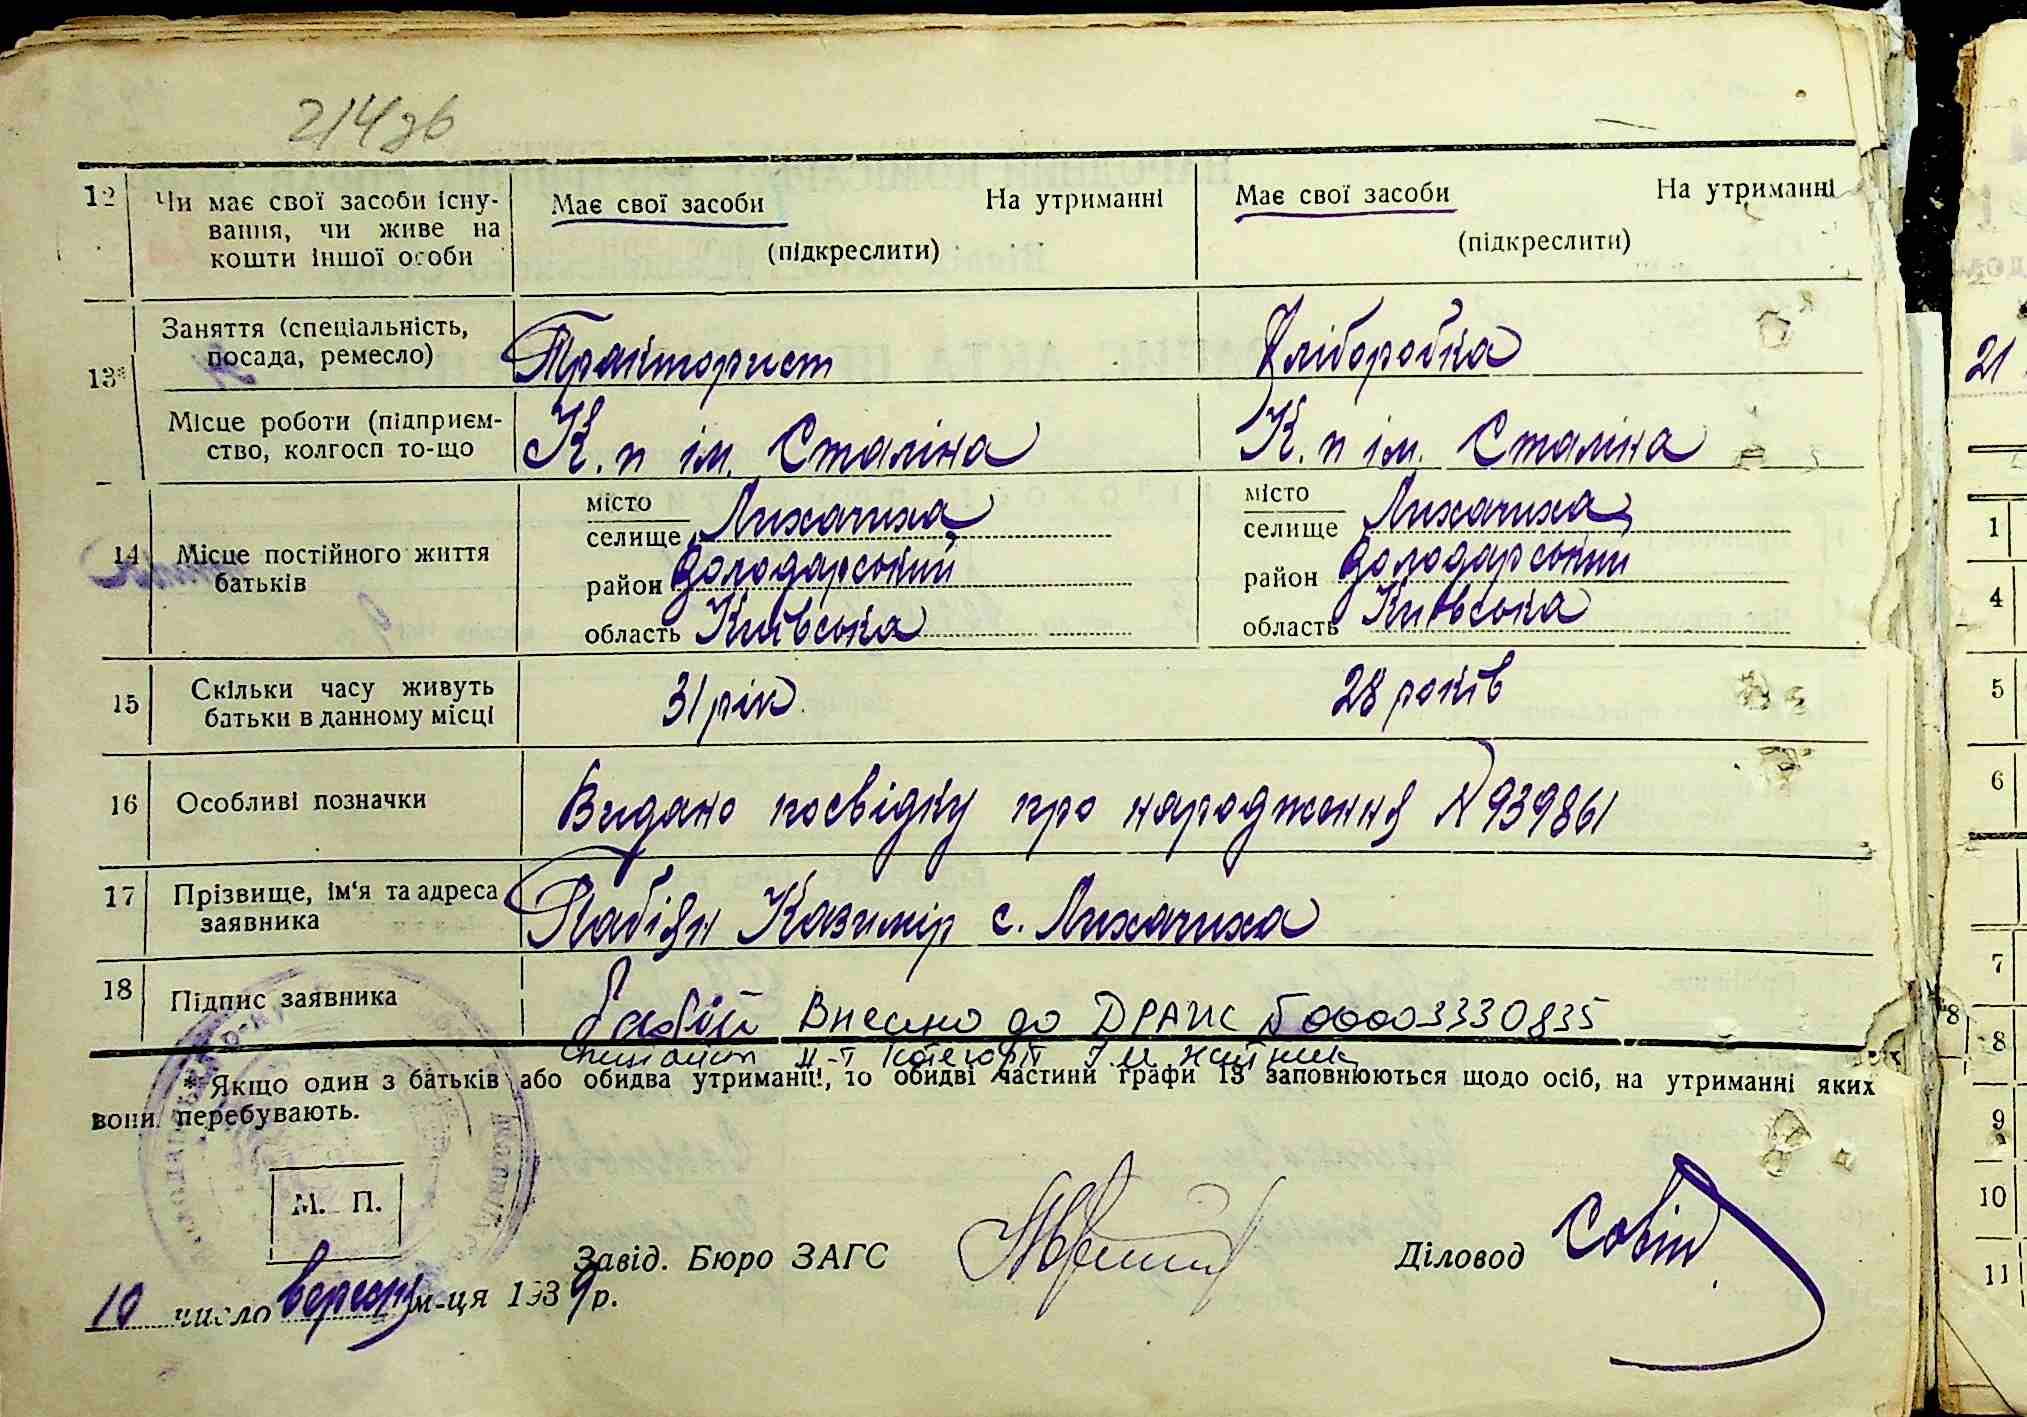 214зв
12 Чи має свої засоби існу-
вання, чи живе на
кошти іншої особи
Має свої засоби На утриманні
(підкреслити)
Має свої засоби На утриманні
(підкреслити)
13*
Заняття (спеціальність,
посада, ремесло)
Тракторист
Хліборобка
Місце роботи (підприєм-
ство, колгосп то-що
К.п ім. Сталіна
К.п ім. Сталіна
14 Місце постійного життя
батьків
місто
селище Лихачиха
район Володарський
область Київська
місто
селище Лихачиха
район Володарський
область Київська
15 Скільки часу живуть
батьки в данному місці
31 рік
28 років
16 Особливі позначки
Видано посвідку про народження № 939861
17 Прізвище, ім'я та адреса
заявника
Бабій Казимір с. Лихачиха
18 Підпис заявника
Бабій Внесено до ДРАЦС Б 00003330835
Спеціаліст ІІ-ї категорії
*Якщо один з батьків або обидва утриманці, то обидві частини графи 13 заповнюються щодо осіб, на утриманні яких
вони перебувають.
М. П.
Завід. Бюро ЗАГС
Діловод
10 число вересня м-ця 1939 р.
21
1
4
5
6
7
8
8
9
10
11